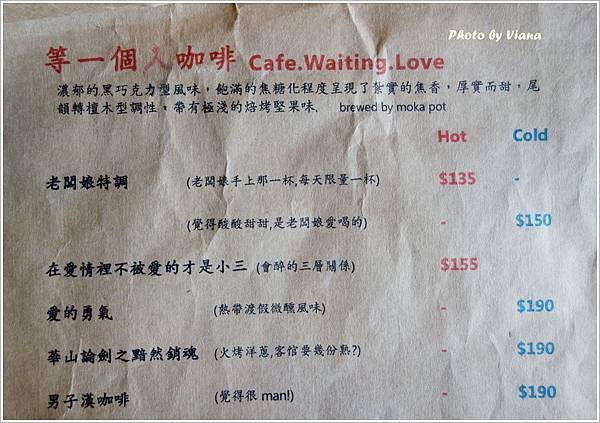 Photo by Viana
等一個人咖啡 Cafe.Waiting.Love
濃郁的黑巧克力型風味，飽滿的焦糖化程度呈現了紮實的焦香，厚實而甜，尾
韻轉檀木型調性，帶有極淺的焙烤堅果味． brewed by moka pot
Hot Cold
老闆娘特調 (老闆娘手上那一杯,每天限量一杯) $135 -
(覺得酸酸甜甜,是老闆娘愛喝的) - $150
在愛情裡不被愛的才是小三 (會醉的三層關係) $155
愛的勇氣 (熱帶渡假微醺風味) - $190
華山論劍之黯然銷魂 (火烤洋蔥,客倌要幾份熟?) - $190
男子漢咖啡 (覺得很 man!) - $190